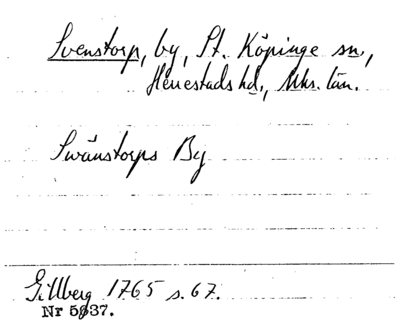 Svenstorp, by, St. Köpinge sn,
Herrestads hd., Mhs. län.
Swänstorps By
Gillberg 1765 s. 67.
Nr 5037.